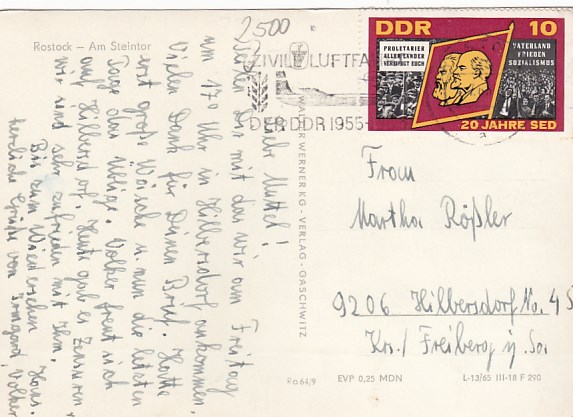 Rostock – Am Steintor
2500
ZIVILE LUFTFA
DER DDR 1955-
DDR 10
PROLETARIER
ALLER LÄNDER
VEREINIGT EUCH
VATERLAND
FRIEDEN
SOZIALISMUS
20 JAHRE SED
Liebe Muttel!
Teilen Dir mit das wir am Freitag
um 17⁰ Uhr in Hilbersdorf ankommen.
Vielen Dank für Deinen Brief. Hatte
erst große Wäsche u. nun die letzten
Tage das übige. Volker freut sich
auf Hilbersdorf. Heute gab es Zensuren
wir sind sehr zufrieden mit Ihm.
Bis zum Wiedersehen
herzliche Grüße von Irmgard, Volker
Hans.
WALTER WERNER KG - VERLAG - GASCHWITZ
Frau
Martha Rößler
9206 Hilbersdorf No. 45
Krs./ Freiberg i. Sa.
Ro 64/9 EVP 0,25 MDN L-13/65 III-18 F 290